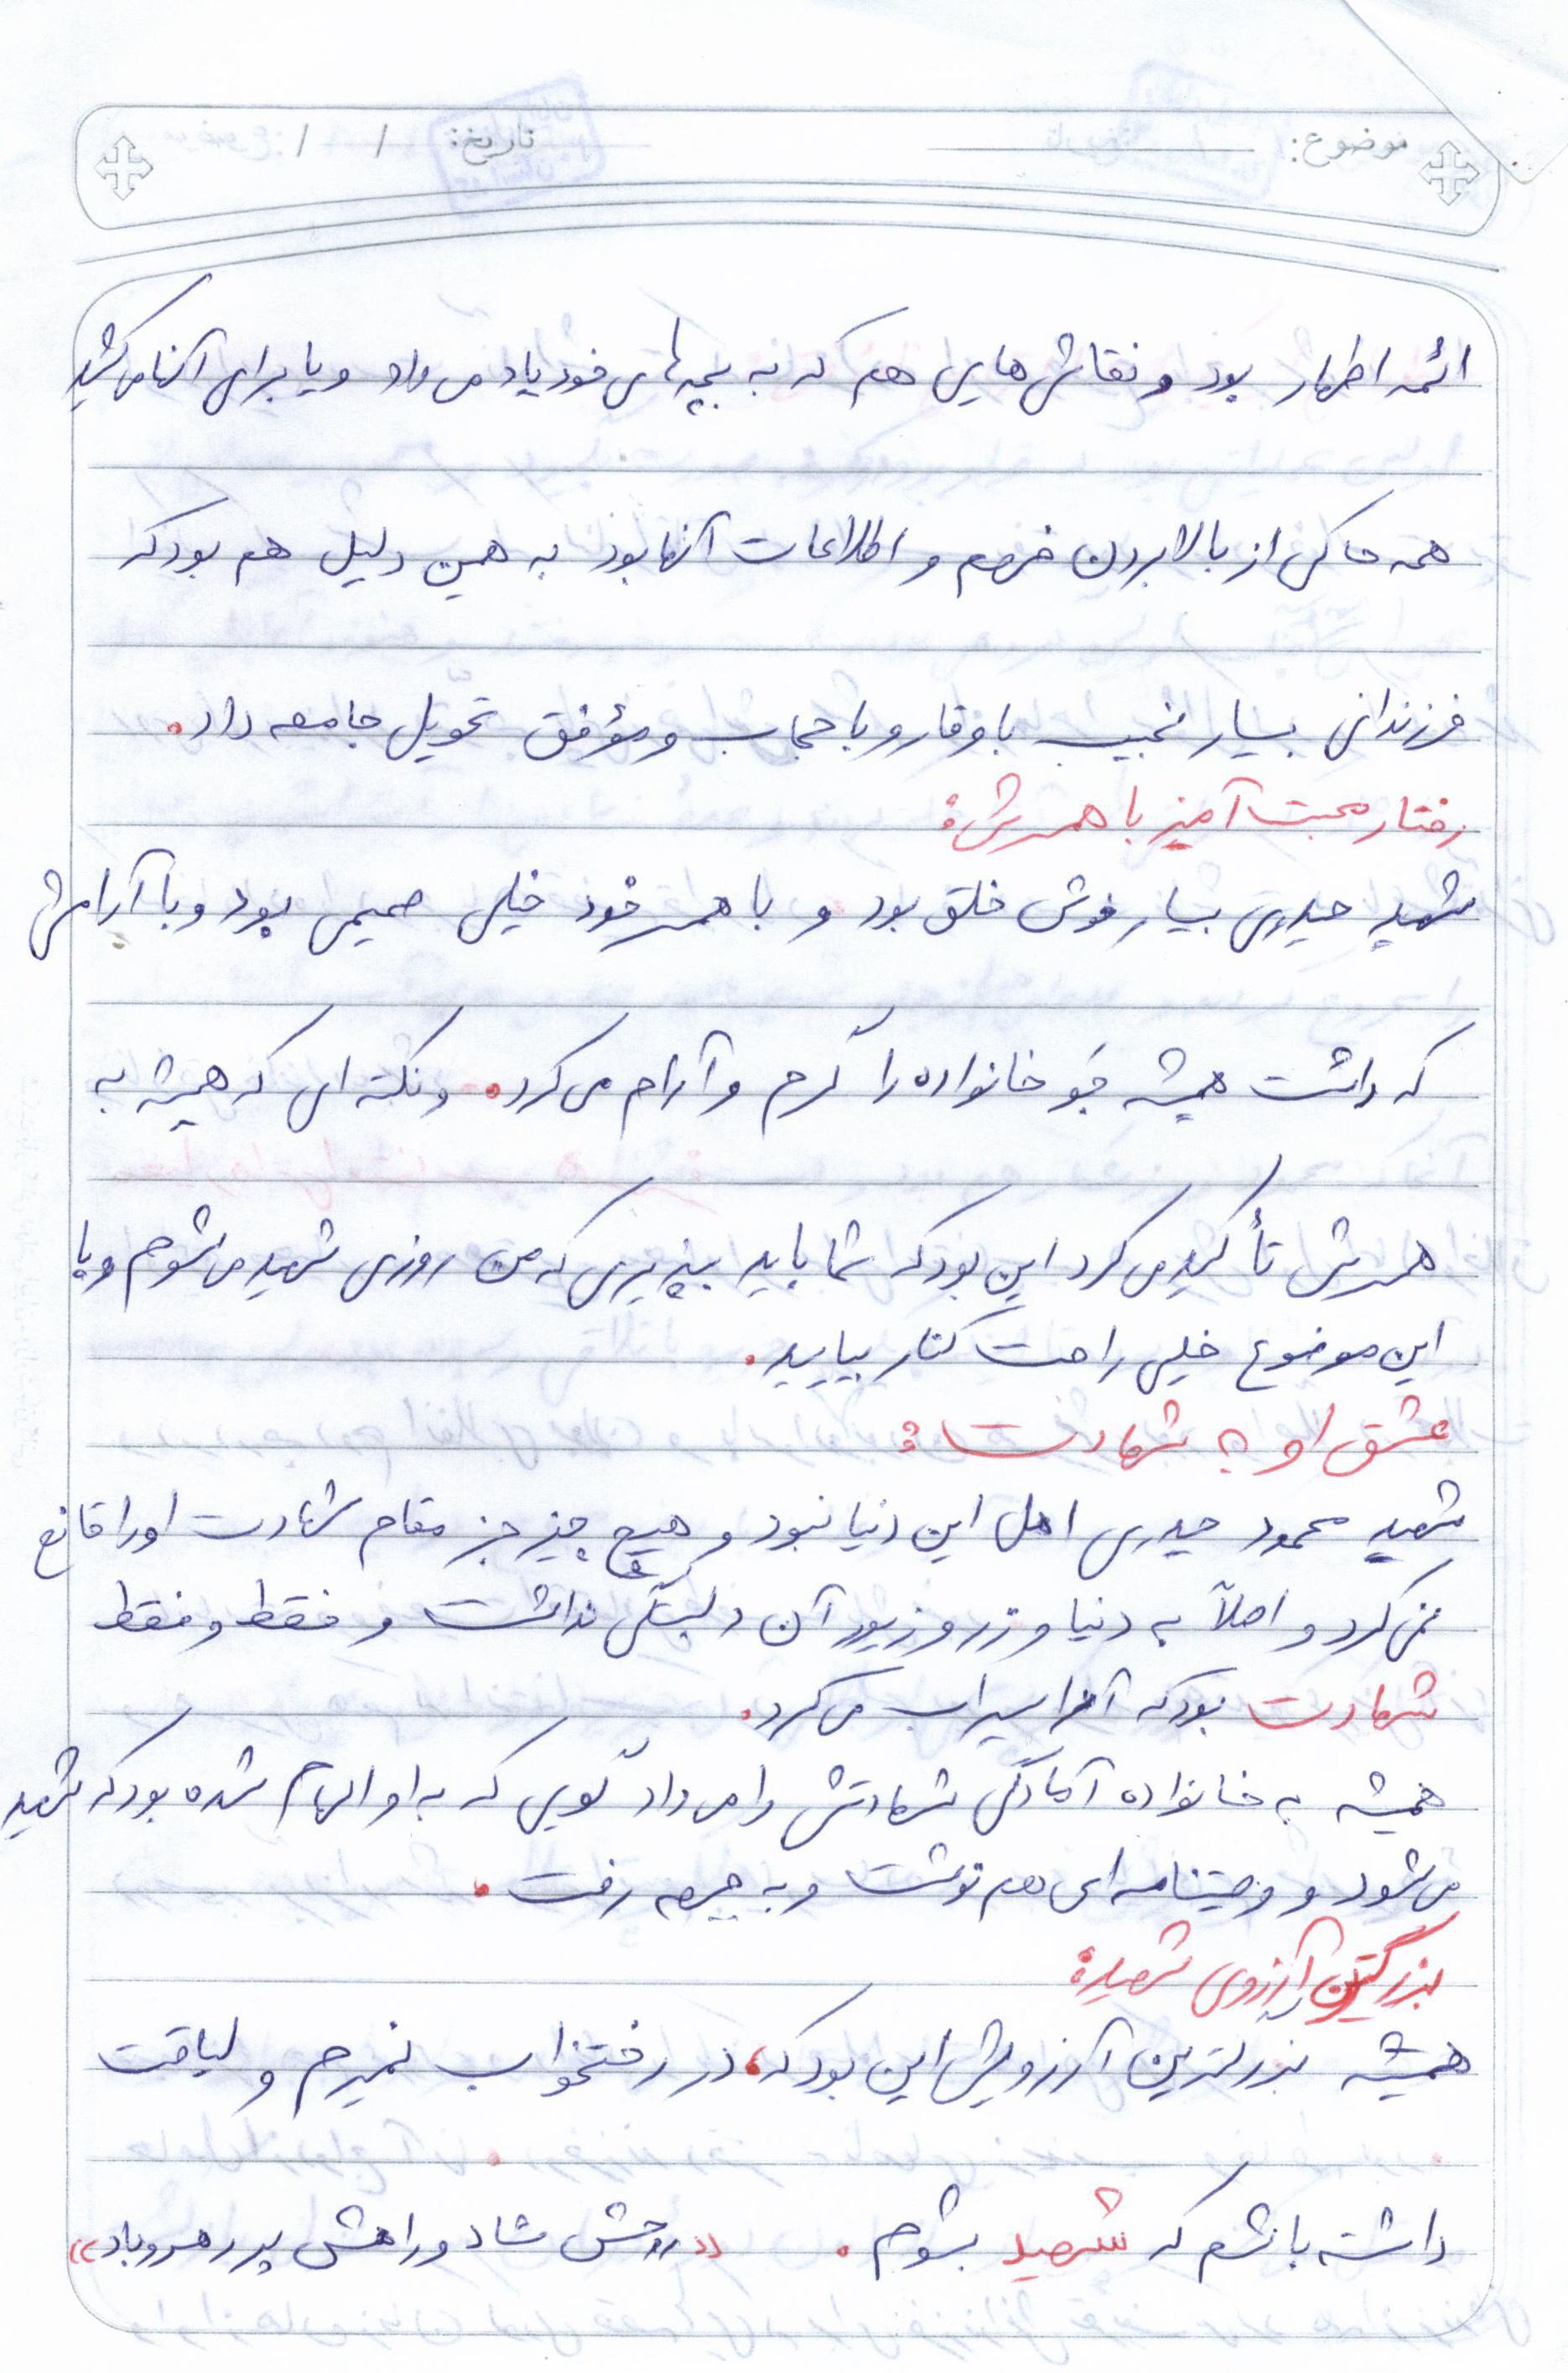 موضوع: تاریخ: / /
ائمه اطهار بود و نقاشی هایی هم که به بچه های خود یاد می داد و یا برای آنها می کشید
همه حاکی از بالا بردن فهم و اطلاعات آنها بود به همین دلیل هم بود که
فرزندانی بسیار نجیب با وقار و با حجاب و مؤفق تحویل جامعه داد.
رفتار محبت آمیز با همسرش:
شهید حیدری بسیار خوش خلق بود و با همسر خود خیلی صمیمی بود و با آرامشی
که داشت همیشه جَو خانواده را گرم و آرام می کرد. و نکته ای که همیشه به
همسرش تأکید می کرد این بود که شما باید بپذیری که من روزی شهید می شوم و با
این موضوع خیلی راحت کنار بیایید.
عشق او به شهادت:
شهید محمود حیدری اهل این دنیا نبود و هیچ چیز جز مقام شهادت او را قانع
نمی کرد و اصلاً به دنیا و زر و زیور آن دلبستگی نداشت و فقط و فقط
شهادت بود که آنرا سیراب می کرد.
همیشه به خانواده آمادگی شهادتش را می داد گویی که به او الهام شده بود که شهید
می شود و وصیتنامه ای هم نوشت و به جبهه رفت.
بزرگترین آرزوی شهید:
همیشه بزرگترین آرزویش این بود که، در رختخواب نمیرم و لیاقت
داشته باشم که شهید بشوم. «روحش شاد و راهش پر رهرو باد»